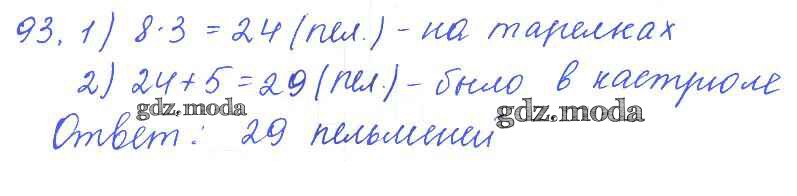 93. 1) 8·3 = 24 (пел.) - на тарелках
2) 24+5=29 (пел.) - было в кастрюле
gdz.moda gdz.moda
Ответ: 29 пельменей